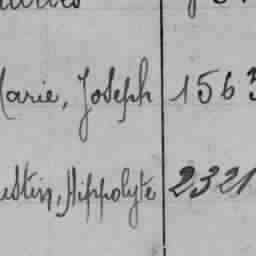 Marie, Joseph 1563
ustin, Hippolyte 2321